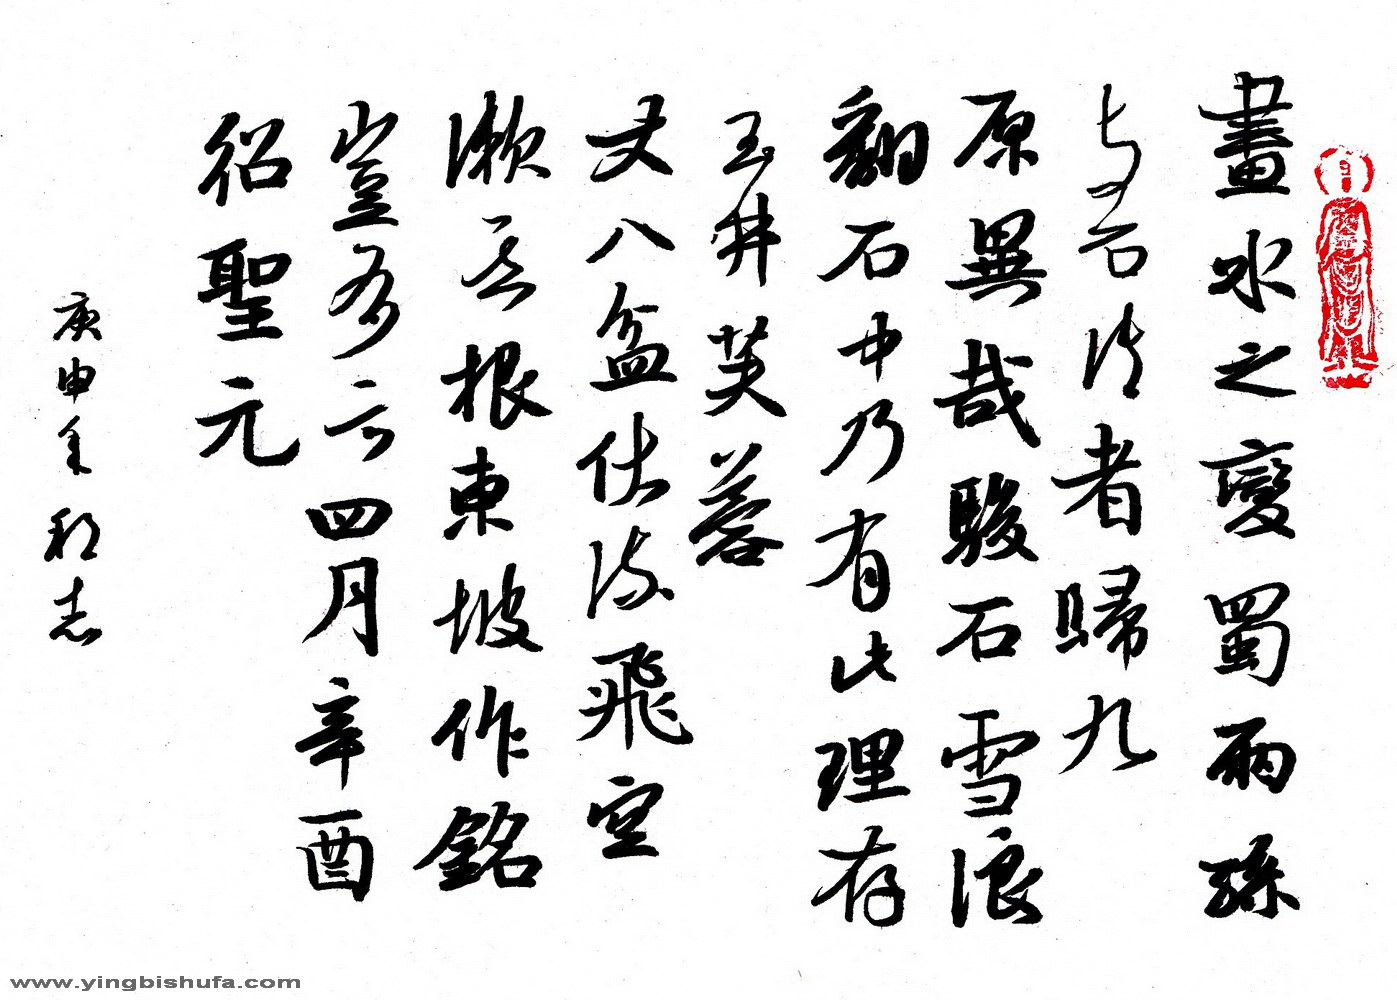 畫水之變蜀兩孫
与者歸九
原異哉駿石雪浪
翻石中乃有此理存
玉井芙蓉
丈八盆伏流飛空
漱其根東坡作銘
豈多言四月辛酉
紹聖元
庚申年志
www.yingbishufa.com